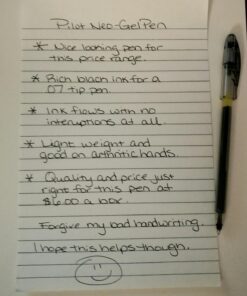 Pilot Neo-GelPen
* Nice looking pen for
this price range.
* Rich black ink for a
07 tip pen.
* Ink flows with no
interuptions at all.
* Light weight and
good on arthritic hands.
* Quality and price just
right for this pen at
$6.00 a box.
Forgive my bad handwriting.
I hope this helps though.